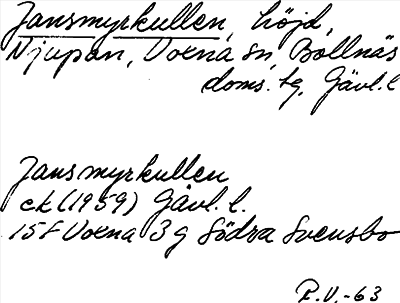 Jansmyrkullen, höjd,
Njupån, Voxna sn, Bollnäs
doms. tg, Gävl. l
Jansmyrkullen
ek (1959) Gävl. l.
15F Voxna 3 g Södra Svensbo
R.V.-63